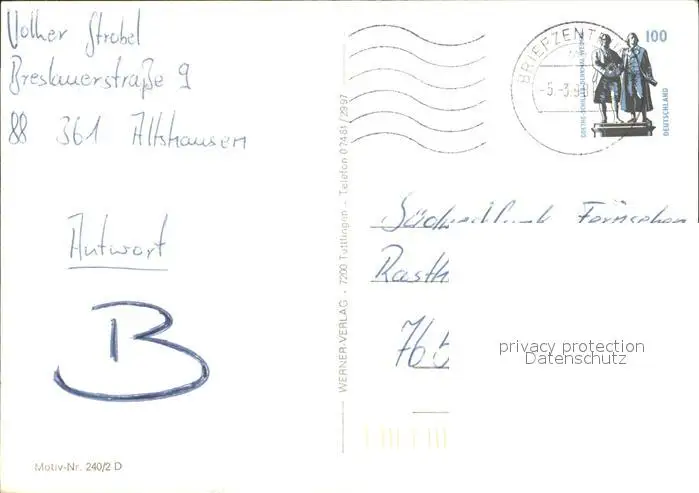 Volker Strobel
Breslauerstraße 9
88 361 Altshausen
Antwort
B
Motiv-Nr. 240/2 D
WERNER-VERLAG - 7200 Tuttlingen - Telefon 07461/2997
BRIEFZENT
-5.-3.9
100
GOETHE-SCHILLER-DENKMAL
DEUTSCHLAND
Fernsehen
Rasth
76
privacy protection
Datenschutz